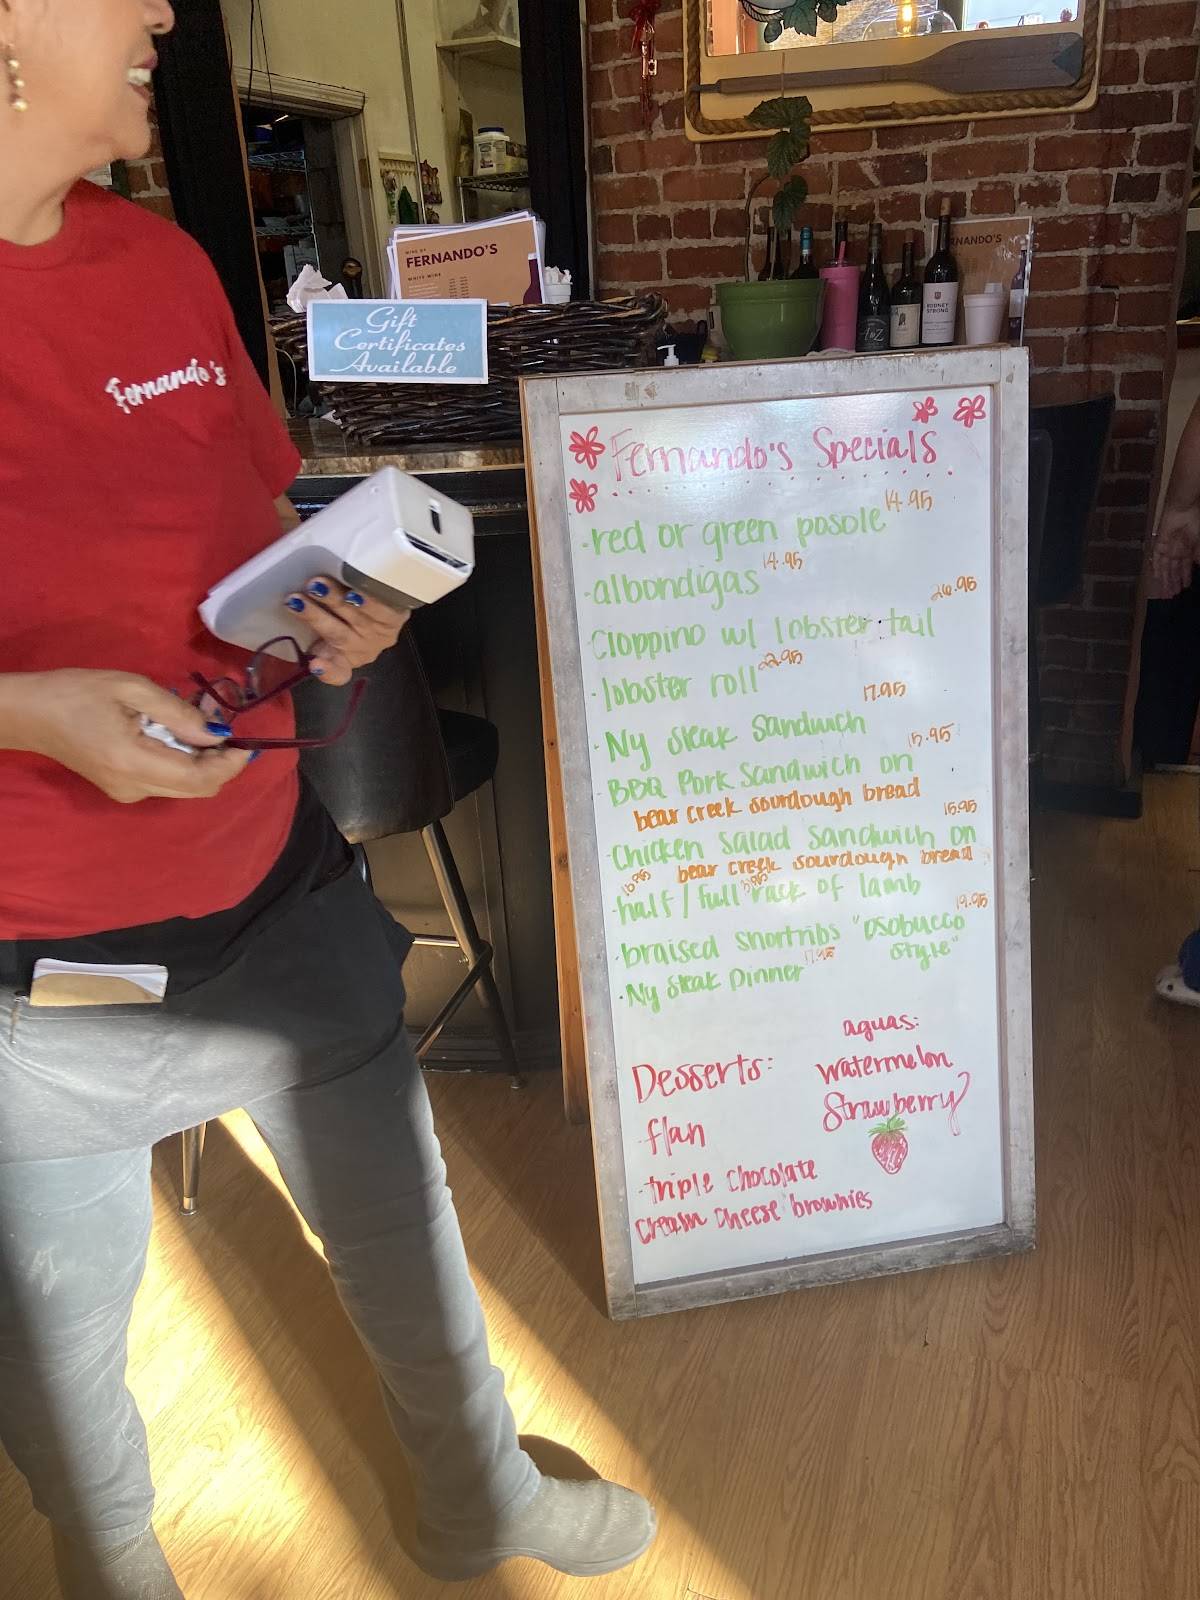 WINE BY
FERNANDO'S
WHITE WINE
FERNANDO'S
RODNEY
STRONG
Gift
Certificates
Available
Fernando's
Fernando's Specials
·red or green posole 14.95
·albondigas 14.95
Cioppino w/ lobster tail 26.95
·lobster roll 22.95
·Ny Steak Sandwich 17.95
BBQ Pork Sandwich on 15.95
bear creek sourdough bread
·Chicken Salad Sandwich on 15.95
bear creek sourdough bread
·half / full rack of lamb
·braised shortribs "osobucco 19.95
style"
·Ny Steak Dinner 17.95
aguas:
watermelon
Strawberry
Desserts:
flan
·triple chocolate
cream cheese brownies